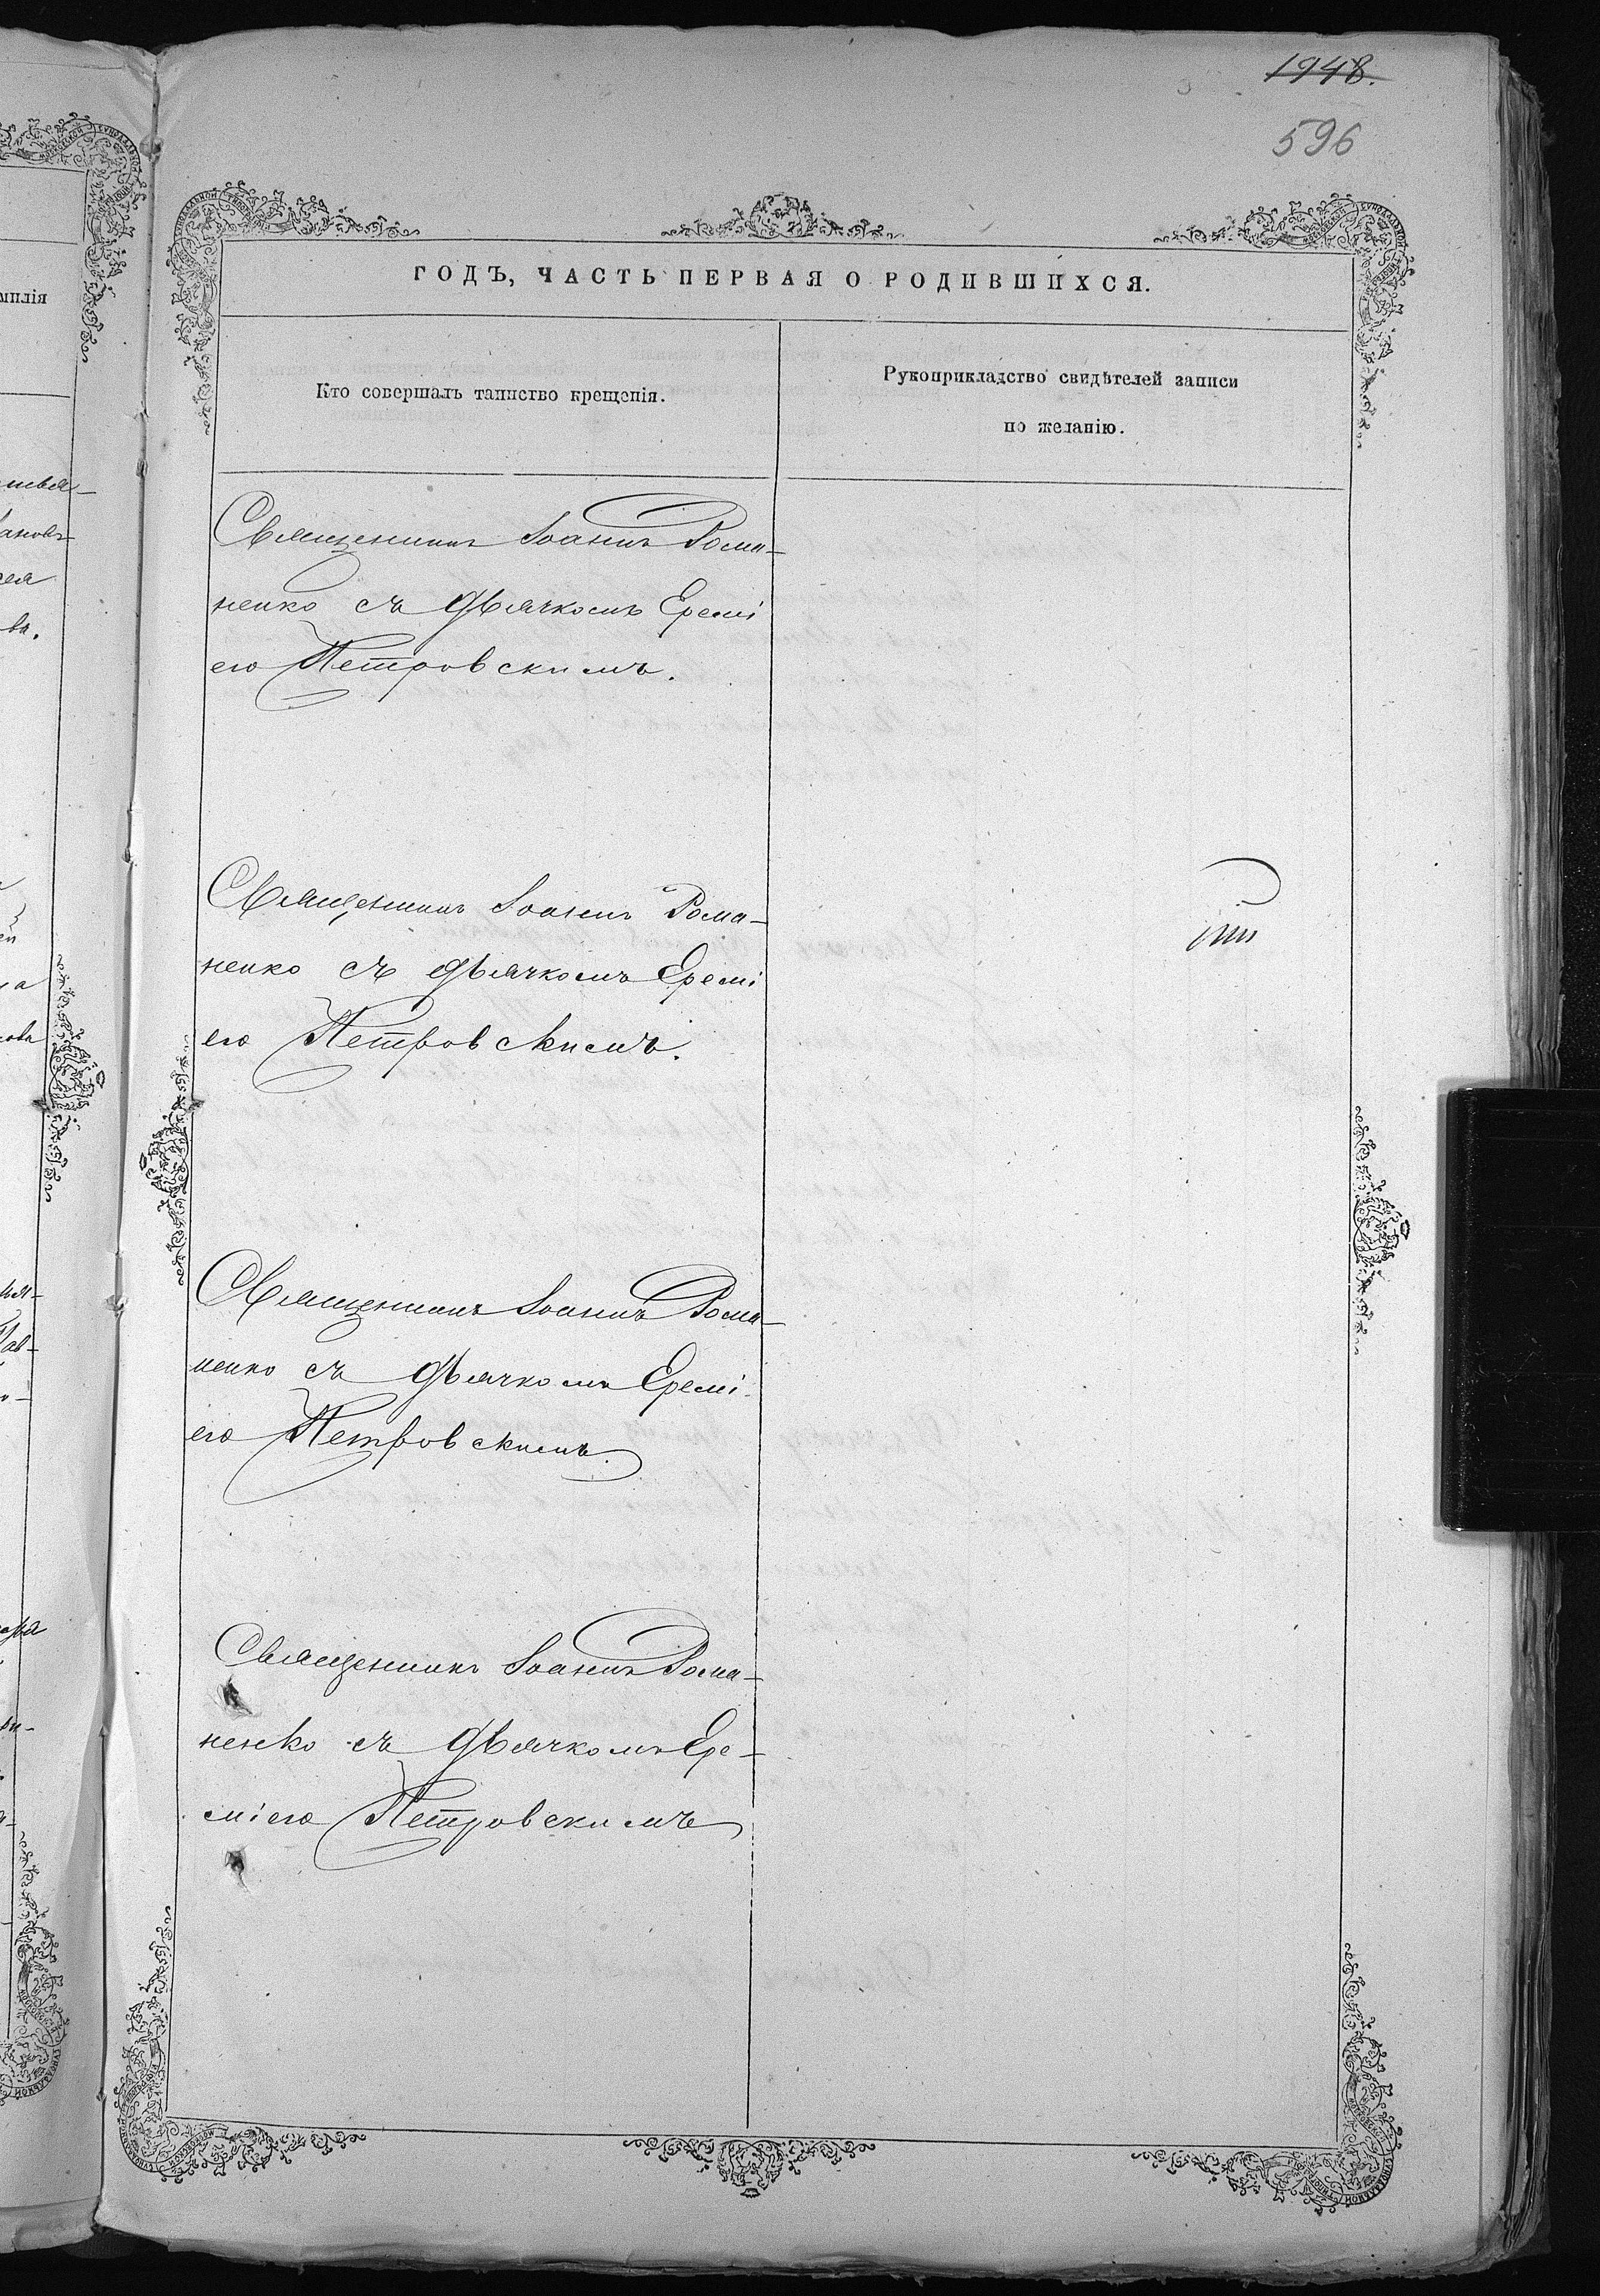 1948.
596
ГОДЪ, ЧАСТЬ ПЕРВАЯ О РОДИВШИХСЯ.
Кто совершалъ таинство крещенія.
Рукоприкладство свидѣтелей записи
по желанію.
Священникъ Іоаннъ Рома-
ненко съ дьячкомъ Еремі
ею Петровскимъ.
Священникъ Іоаннъ Рома-
ненко съ дьячкомъ Еремі
ею Петровскимъ.
Священникъ Іоаннъ Рома-
ненко съ дьячкомъ Еремі
ею Петровскимъ.
Священникъ Іоаннъ Рома-
ненко съ дьячкомъ Ере-
міею Петровскимъ